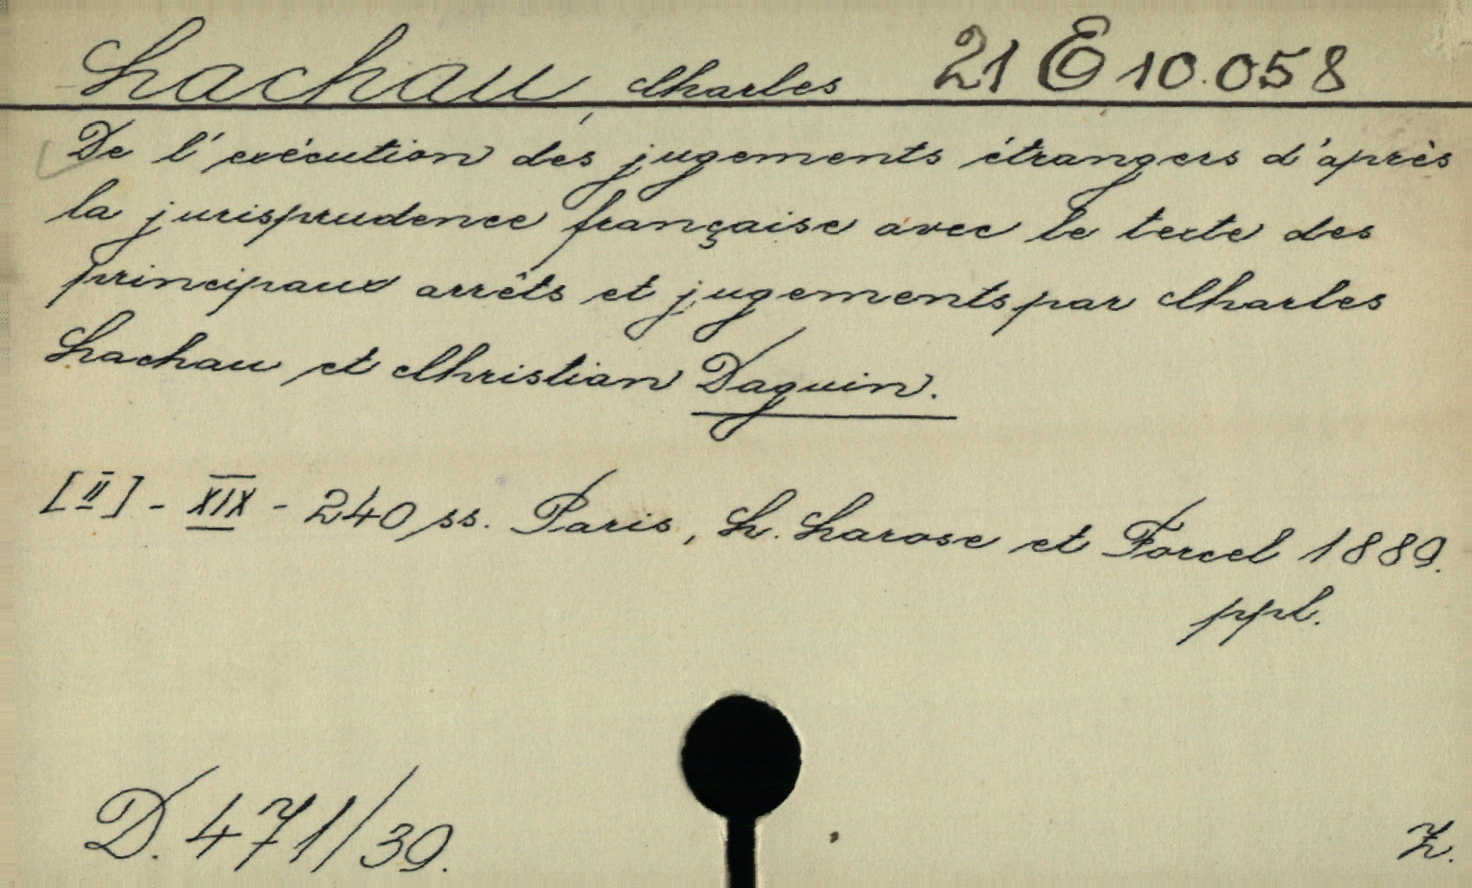 Lachau, Charles 21 E 10.058
De l'exécution des jugements étrangers d'après
la jurisprudence française avec le texte des
principaux arrêts et jugements par Charles
Lachau et Christian Daguin.
[II] - XIX - 240 ss. Paris, L. Larose et Forcel 1889.
ppl.
D. 471/39.
Z.